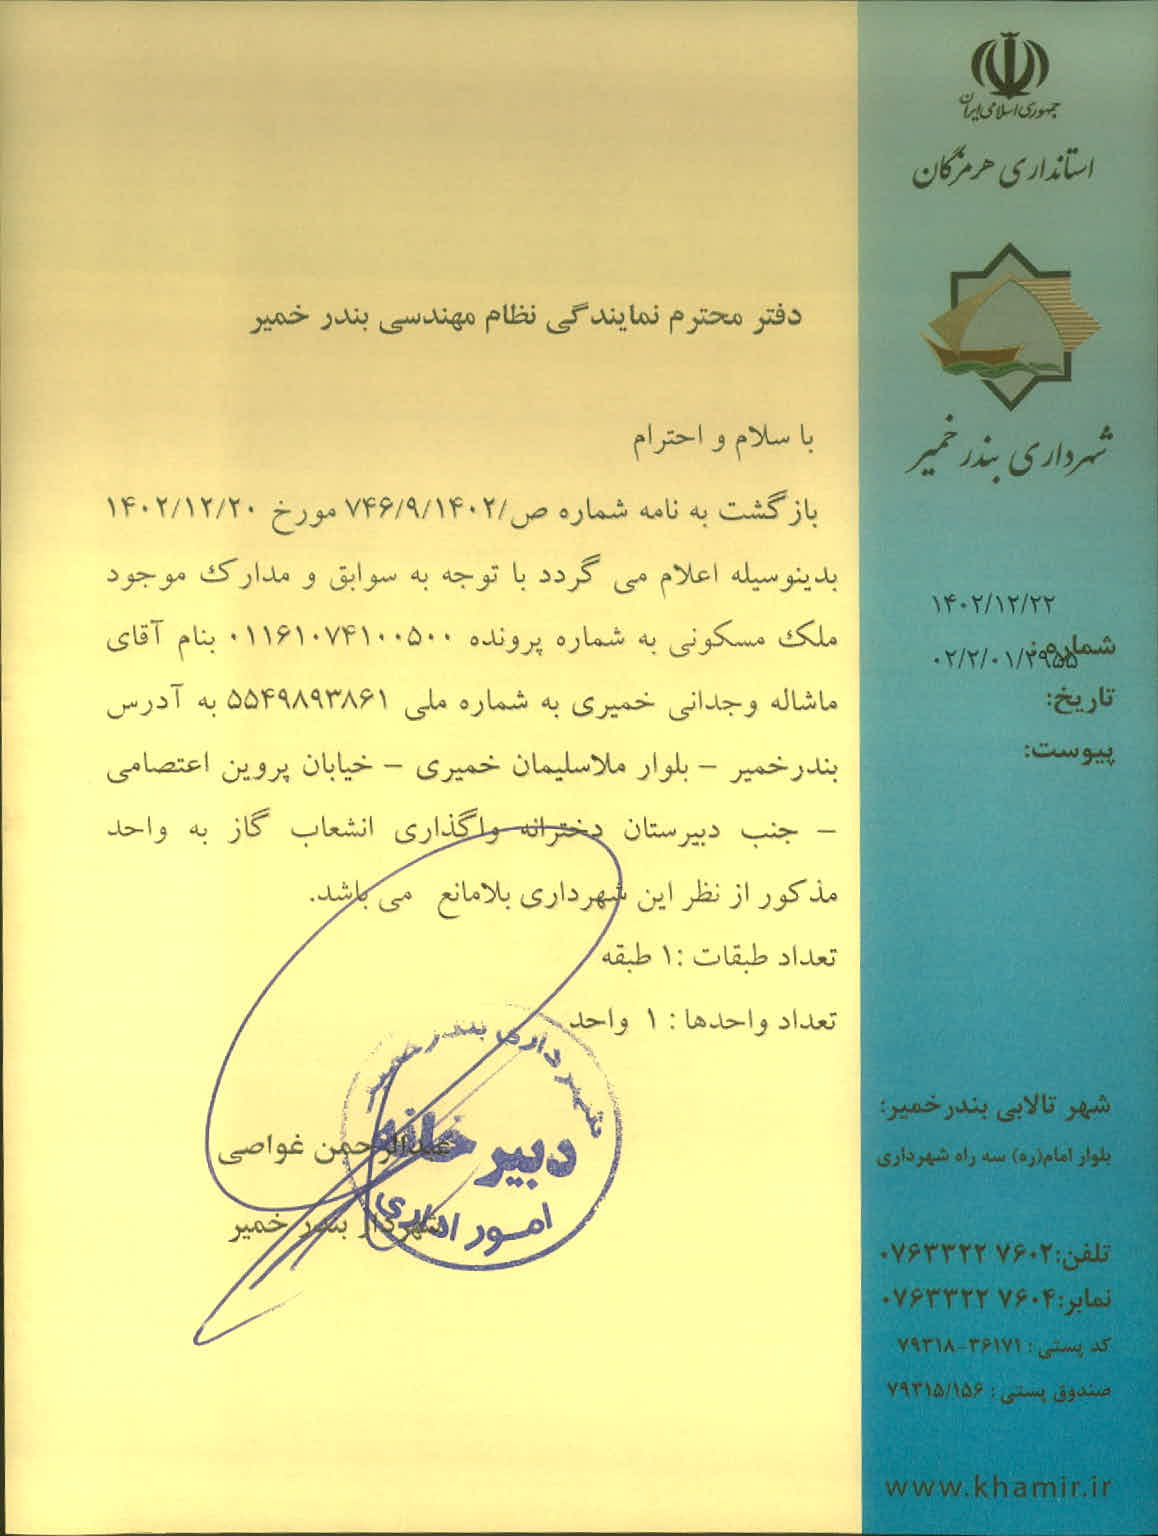 جمهوری اسلامی ایران
استانداری هرمزگان
شهرداری بندر خمیر
۱۴۰۲/۱۲/۲۲
شماره:
۰۲/۲/۰۱/۲۹۵۵
تاریخ:
پیوست:
دفتر محترم نمایندگی نظام مهندسی بندر خمیر
با سلام و احترام
بازگشت به نامه شماره ص/۷۴۶/۹/۱۴۰۲ مورخ ۱۴۰۲/۱۲/۲۰
بدینوسیله اعلام می گردد با توجه به سوابق و مدارک موجود
ملک مسکونی به شماره پرونده ۰۱۱۶۱۰۷۴۱۰۰۵۰۰ بنام آقای
ماشاله وجدانی خمیری به شماره ملی ۵۵۴۹۸۹۳۸۶۱ به آدرس
بندرخمیر – بلوار ملاسلیمان خمیری – خیابان پروین اعتصامی
– جنب دبیرستان دخترانه واگذاری انشعاب گاز به واحد
مذکور از نظر این شهرداری بلامانع می باشد.
تعداد طبقات :۱ طبقه
تعداد واحدها : ۱ واحد
عبدالرحمن غواصی
شهردار بندر خمیر
شهرداری بندر خمیر
دبیرخانه
امور اداری
شهر تالابی بندرخمیر:
بلوار امام(ره) سه راه شهرداری
تلفن:۰۷۶۳۳۲۲ ۷۶۰۲
نمابر:۰۷۶۳۳۲۲ ۷۶۰۴
کد پستی : ۳۶۱۷۱-۷۹۳۱۸
صندوق پستی : ۷۹۳۱۵/۱۵۶
www.khamir.ir